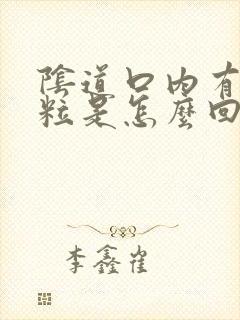 陰道口內有
粒是怎麼回
李鑫崔